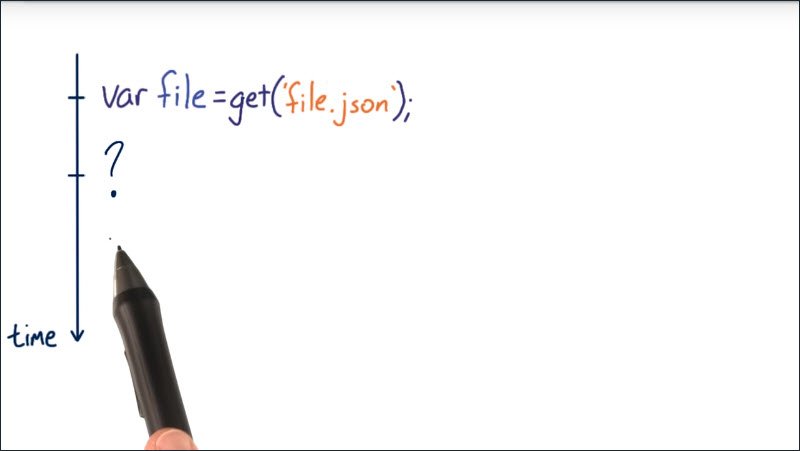 var file=get('file.json');
?
time